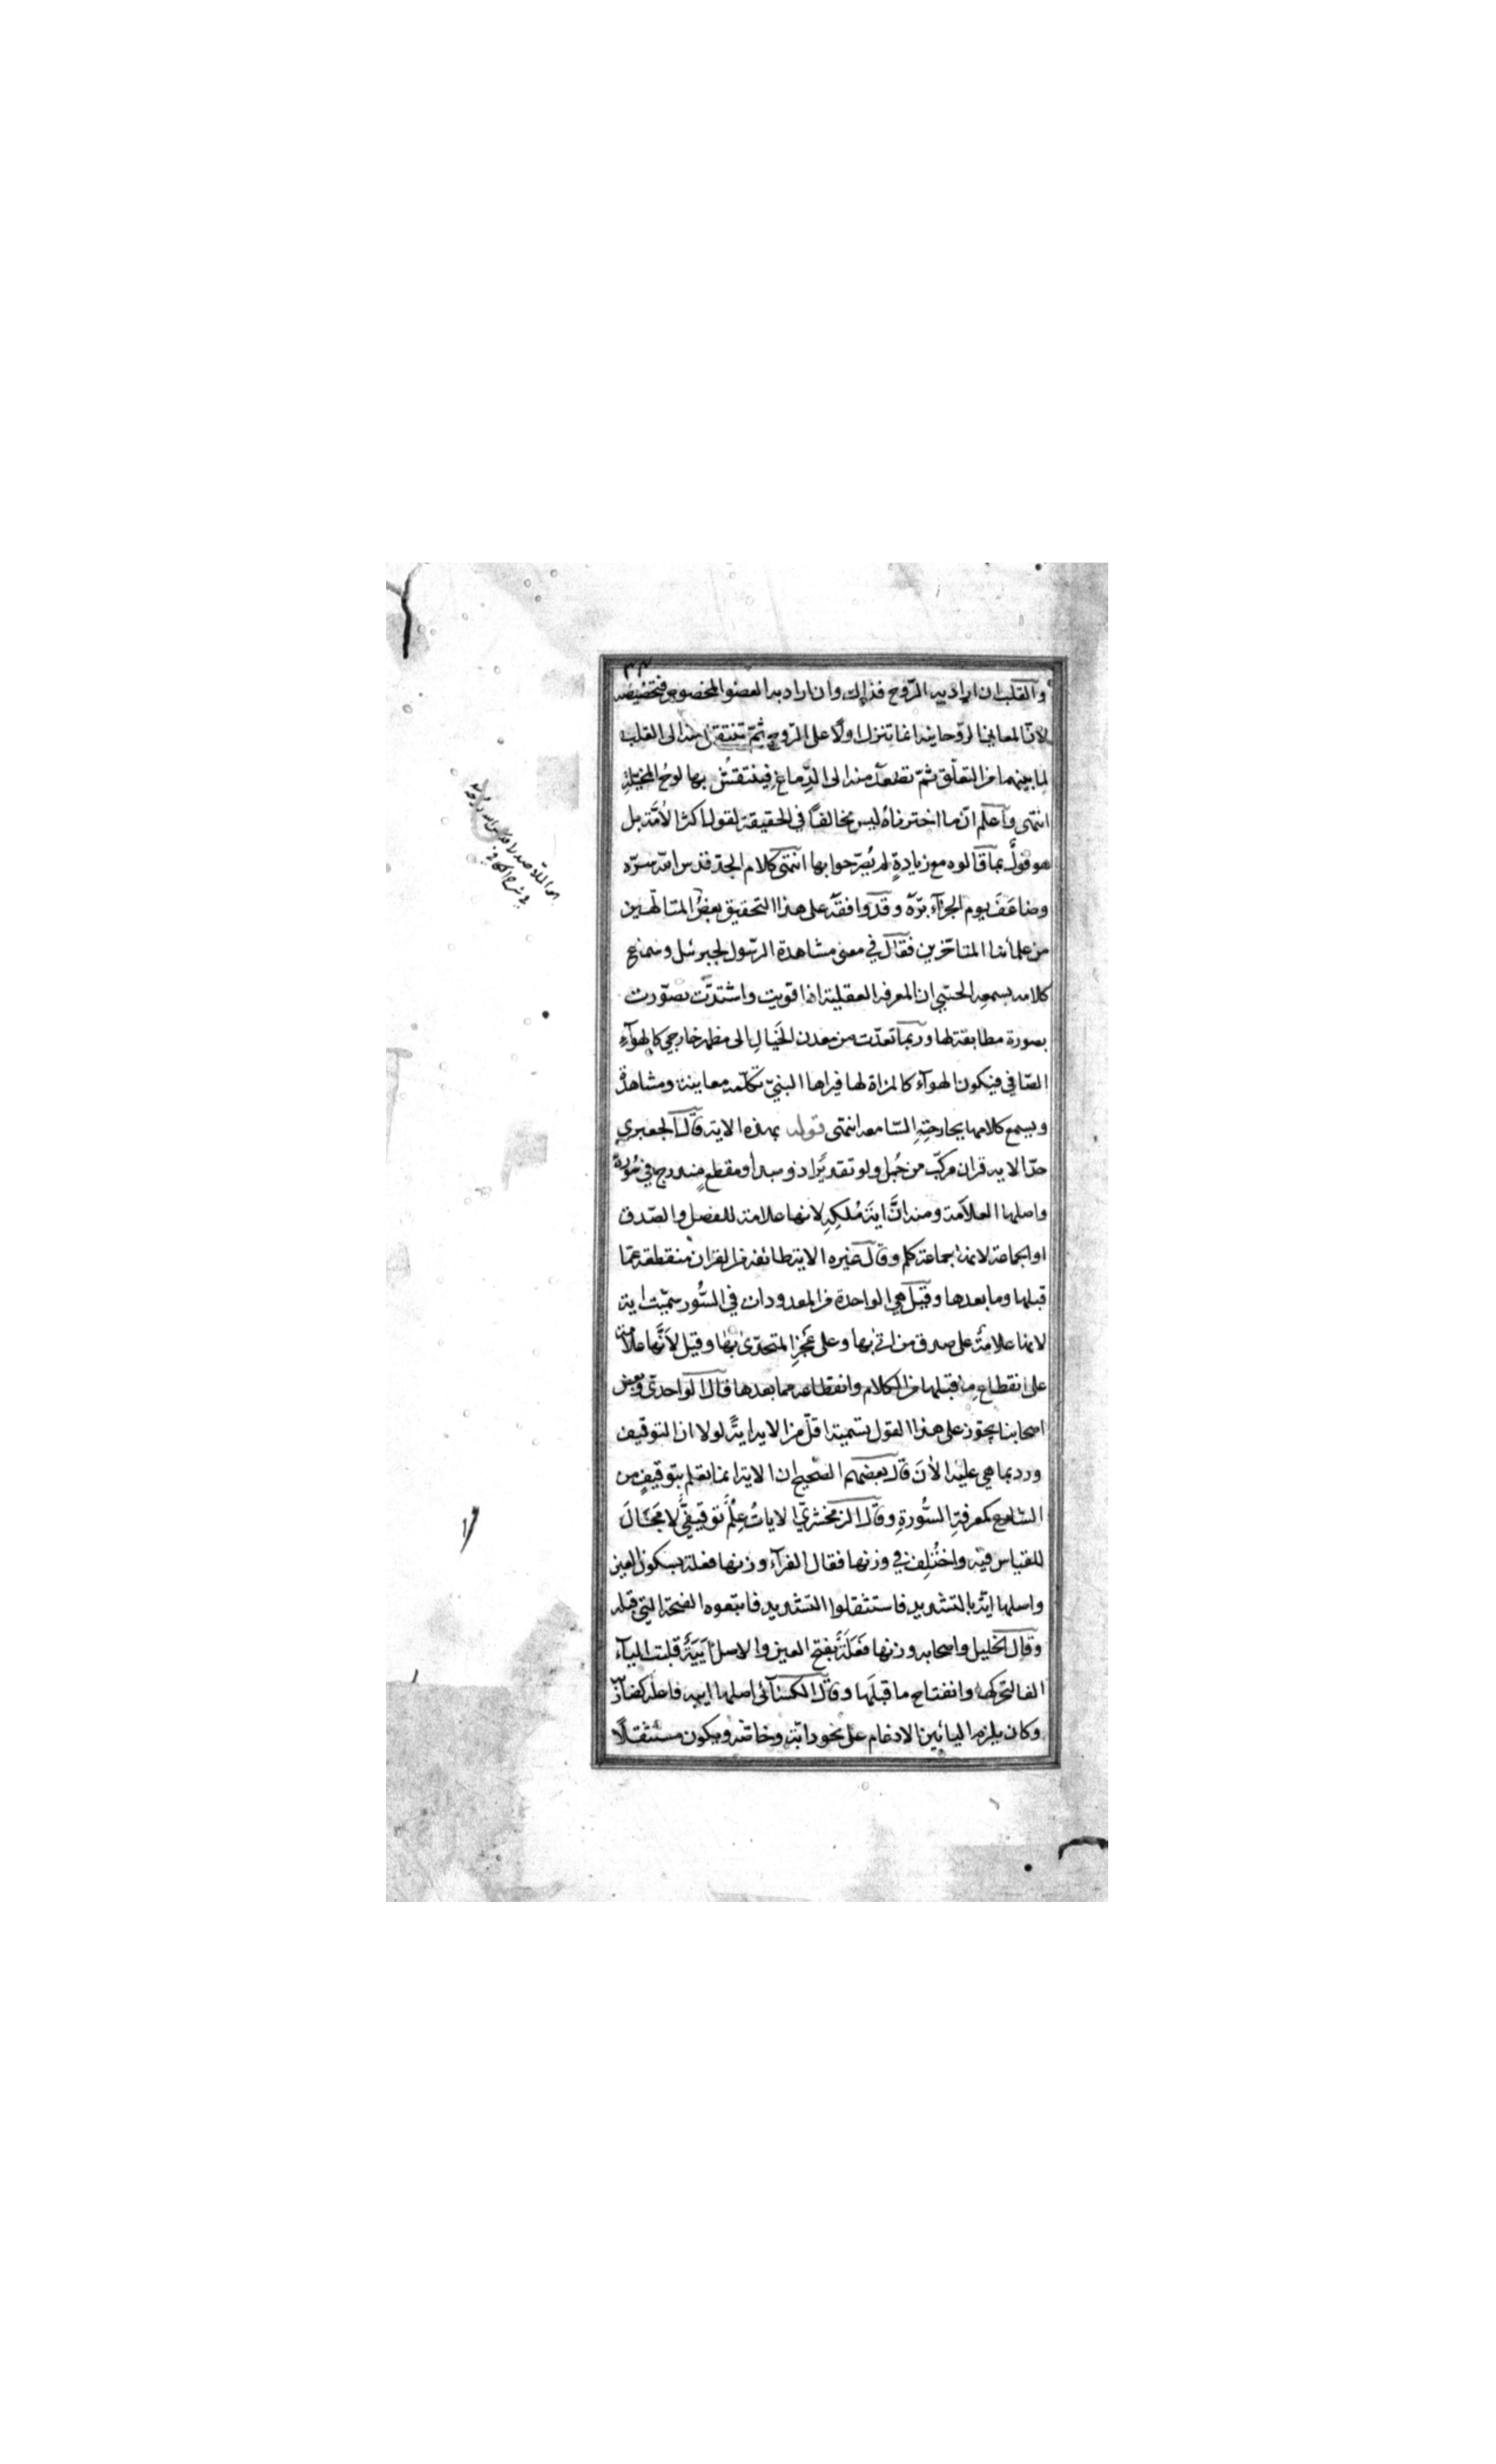 والقلب ان اراد به الروح فذاك وان اراد به العضو المخصوص فتخصيصه
لانّ المعاني الروحانية انما تتنزل اولًا على الرّوح ثمّ تنتقل منه الى القلب
لما بينهما من التعلّق ثمّ تصعد منه الى الدِّماغ فينتقش بها لوحُ المتخيّلة
انتهى وآعلم انّ ما اخترناهُ ليس مخالفاً في الحقيقة لقول اكثر الأمّة بل
هو قولٌ بما قالوه مع زيادةٍ لم يُصَرّحوا بها انتهى كلام الجدّ قدس الله سرّه
وضاعَفَ يوم الجزآء برّه وقد وافقه على هذا التحقيق بعضُ المتالّهين
من علمائنا المتاخّرين فقال في معنى مشاهدة الرّسول لجبرئيل وسماع
كلامه بسمعِه الحسّي ان المعرفة العقلية اذا قويت واشتدّت تصوّرت
بصورة مطابقة لها وربما تعدّت من معدن الخَيالِ الى مظهر خارجي كالهوآءِ
الصّافي فيكون الهوآء كالمرآة لها فيراها النبيّ تكلّمه معاينة ومشاهدة
ويسمع كلامها بجارحتِهِ السّامعه انتهى قوله بهذه الاية قال الجعبري
حدّ الاية قران مركّب من جُمل ولو تقديرًا ذو مبدأ ومقطعٍ مندرج في سُورة
واصلها العلامة ومنه انَّ ايَةَ مُلكِهِ لانها علامة للفضل والصّدق
او الجماعة لانها جماعة كلم وقال غيره الاية طائفة من القران منقطعة عمّا
قبلها وما بعدها وقيل هي الواحدة من المعدودات في السُّور سميّت اية
لانها علامة على صدق من اتى بها وعلى عَجْزِ المتحدّى بها وقيل لأنّها علامة
على انقطاعِ ما قبلها من الكلام وانقطاعه مما بعدها قال الواحدي وبعض
اصحابنا يجوّز على هذا القول تسمية اقلّ من الاية ايةً لولا ان التوقيف
ورد بما هي عليه الأن قال بعضهم الصّحيح ان الاية انما تعلم بتوقيفٍ من
الشّارع كمعرفةِ السُّورةِ وقال الزمخشريّ الاياتُ عِلْمٌ توقيفيٌّ لا مَجَالَ
للقياس فيه واختُلِف في وزنها فقال الفرّآء وزنها فعلة بسكون العين
واصلها ايّة بالتشديد فاستثقلوا التشديد فاتبعوه الفتحة التي قبله
وقال الخليل واصحابه وزنها فَعَلَةٌ بفتح العين والاصل ايَيَةٌ قلبت اليآء
الفا لتحركها وانفتاح ما قبلَها وقال الكسآئى اصلها ايية فاعلة كضاربة
وكان يلزم اليائين الادغام على نحو دابّة وخاصّة ويكون مستثقلًا
في شرح الكافي